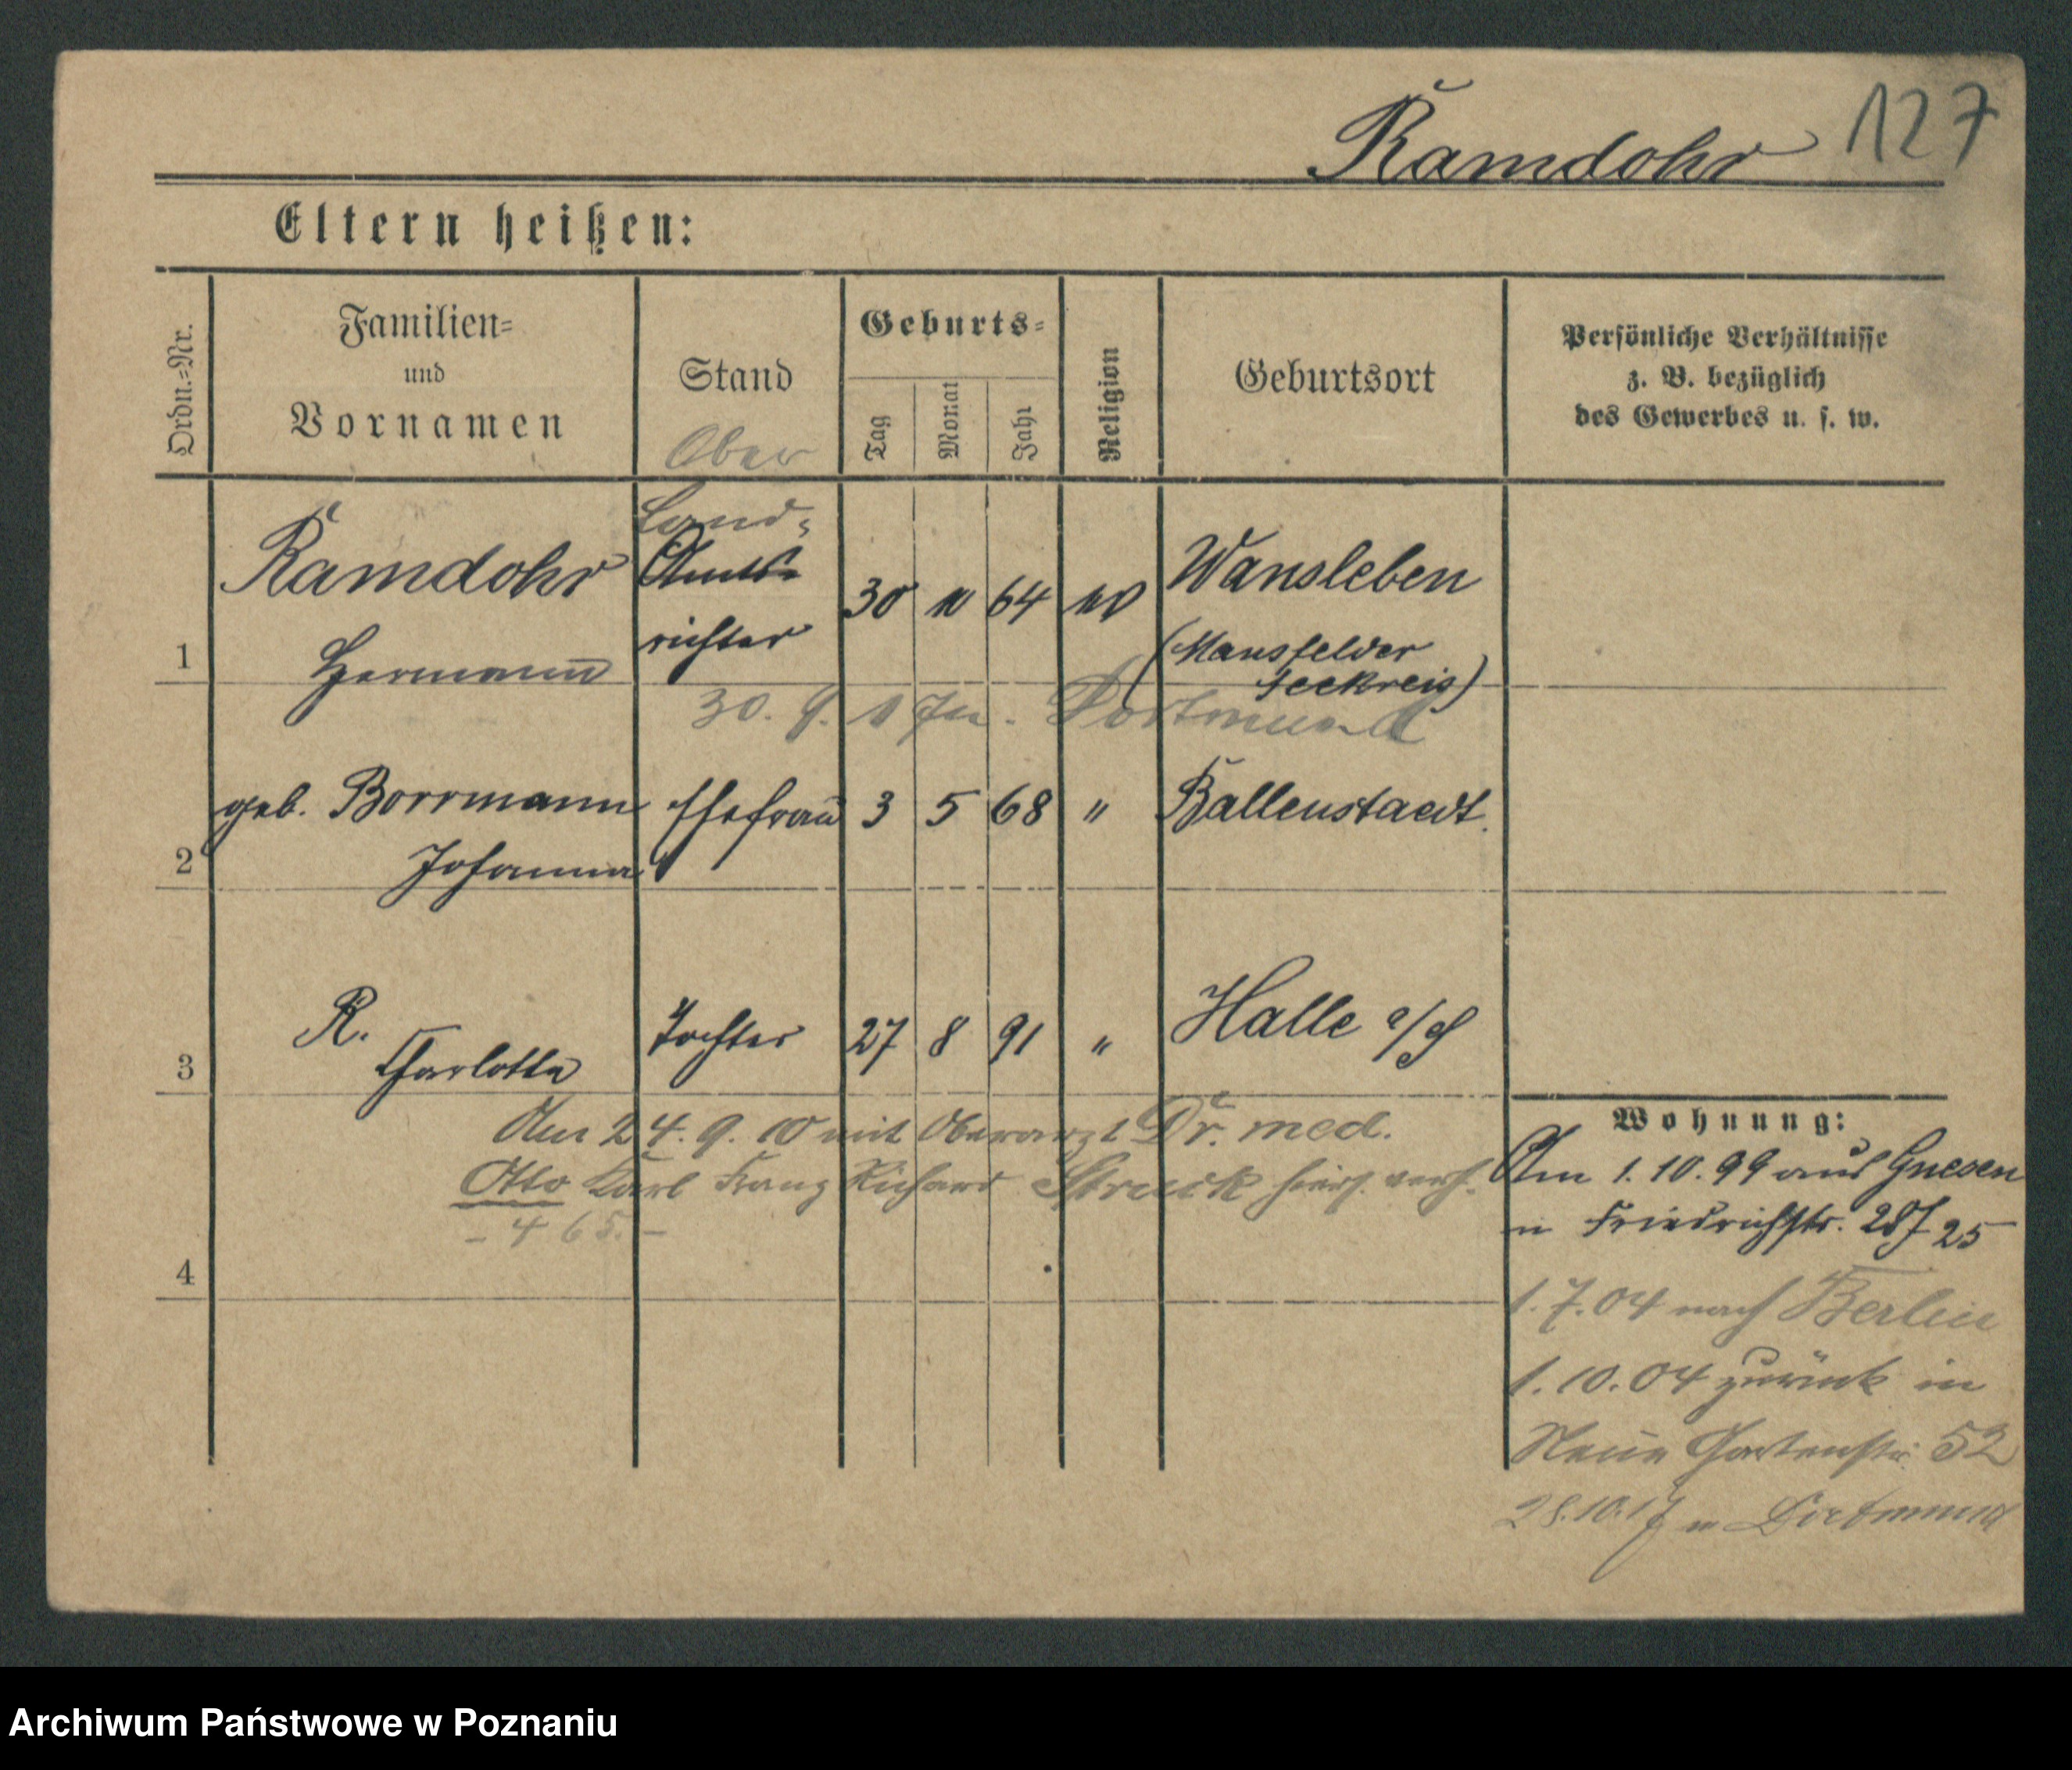 127
Ramdohr
Eltern heißen:
Ordn.=Nr.
Familien=
und
Vornamen
Stand
Geburts=
Tag
Monat
Jahr
Religion
Geburtsort
Persönliche Verhältnisse
z. B. bezüglich
des Gewerbes u. s. w.
Ober
Land-
1 Ramdohr Amts- 30 10 64 ev Wansleben
Hermann richter (Mansfelder
Seekreis)
30. 9. 17 Dortmund
2 geb. Borrmann Ehefrau 3 5 68 " Ballenstaedt
Johanna
3 R. Tochter 27 8 91 " Halle a/S
Charlotte
Am 24. 9. 10 mit Oberarzt Dr. med.
Otto Karl Franz Richard Struck hier verh.
- 465. -
4
Wohnung:
Am 1. 10. 99 aus Gnesen
n Friedrichstr. 25
1. 7. 04 nach Berlin
1. 10. 04 zurück in
Neue Gartenstr. 52
28.10.17 n Dortmund
Archiwum Państwowe w Poznaniu